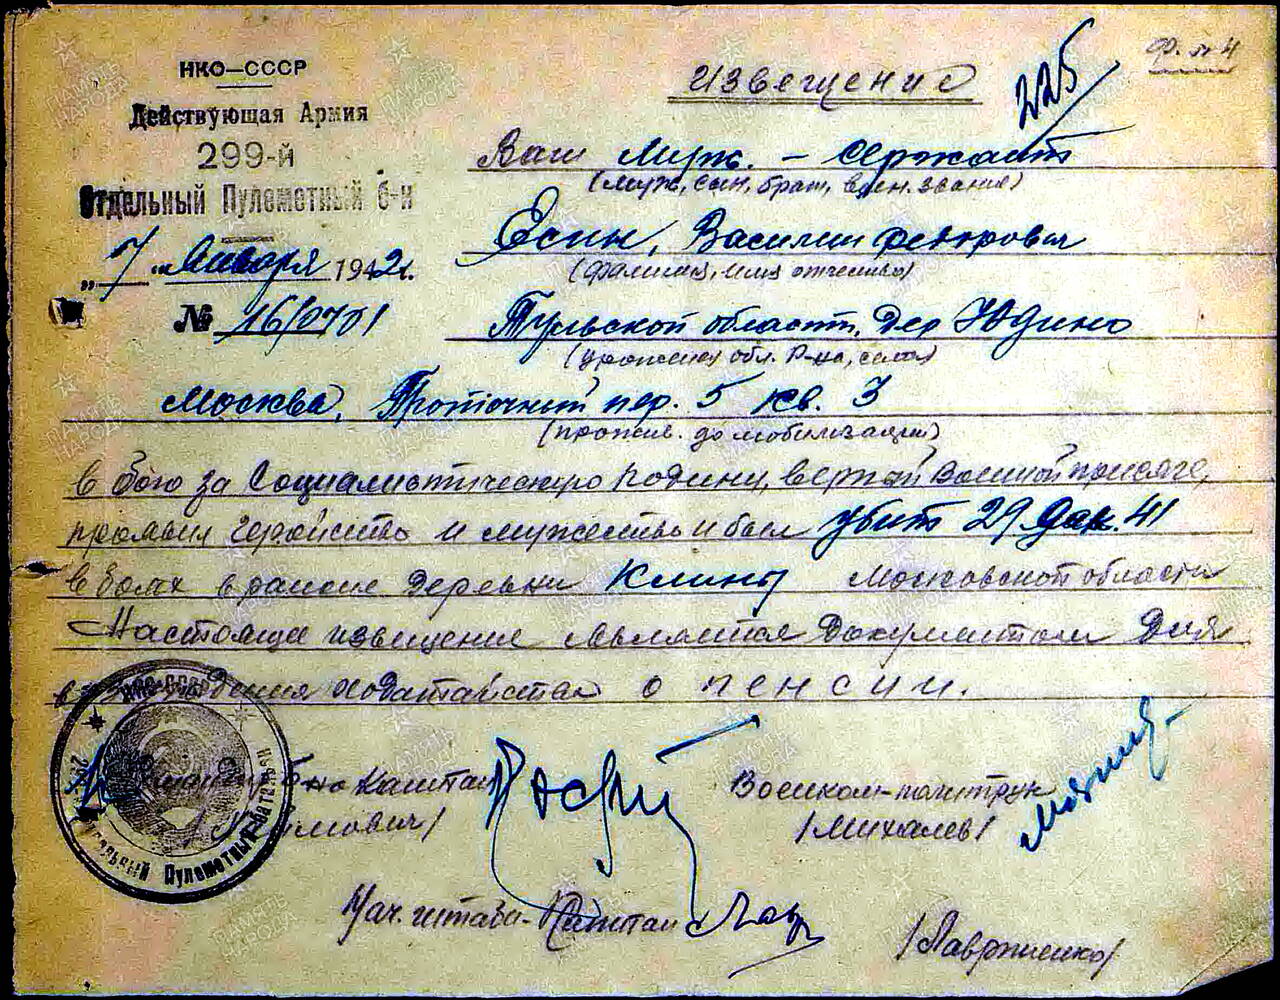 Ф. № 4
НКО—СССР
Действующая Армия
299-й
Отдельный Пулеметный б-н
„7" Января 1942 г.
№ 16/0701
Извещение
225
Ваш муж. – сержант
(муж, сын, брат, воен. звание)
Есин, Василий Федорович
(фамилия, имя отчество)
Тульской области, дер Юдино
(уроженец обл. Р-на, села)
Москва, Проточный пер. 5 кв. 3
(прожив. до мобилизации)
в бою за Социалистическую Родину, верный Военной присяге,
проявив геройство и мужество и был убит 29 Дек. 41
в боях в районе Деревни Клины Московской области
Настоящее извещение является Документом Для
возбуждения ходатайства о пенсии.
б-на Капитан
Военком-политрук
/Михалев/
Нач. штаба-Капитан
/Лавриненко/
НКО-СССР
Отдельный Пулеметный батальон
ПАМЯТЬ НАРОДА